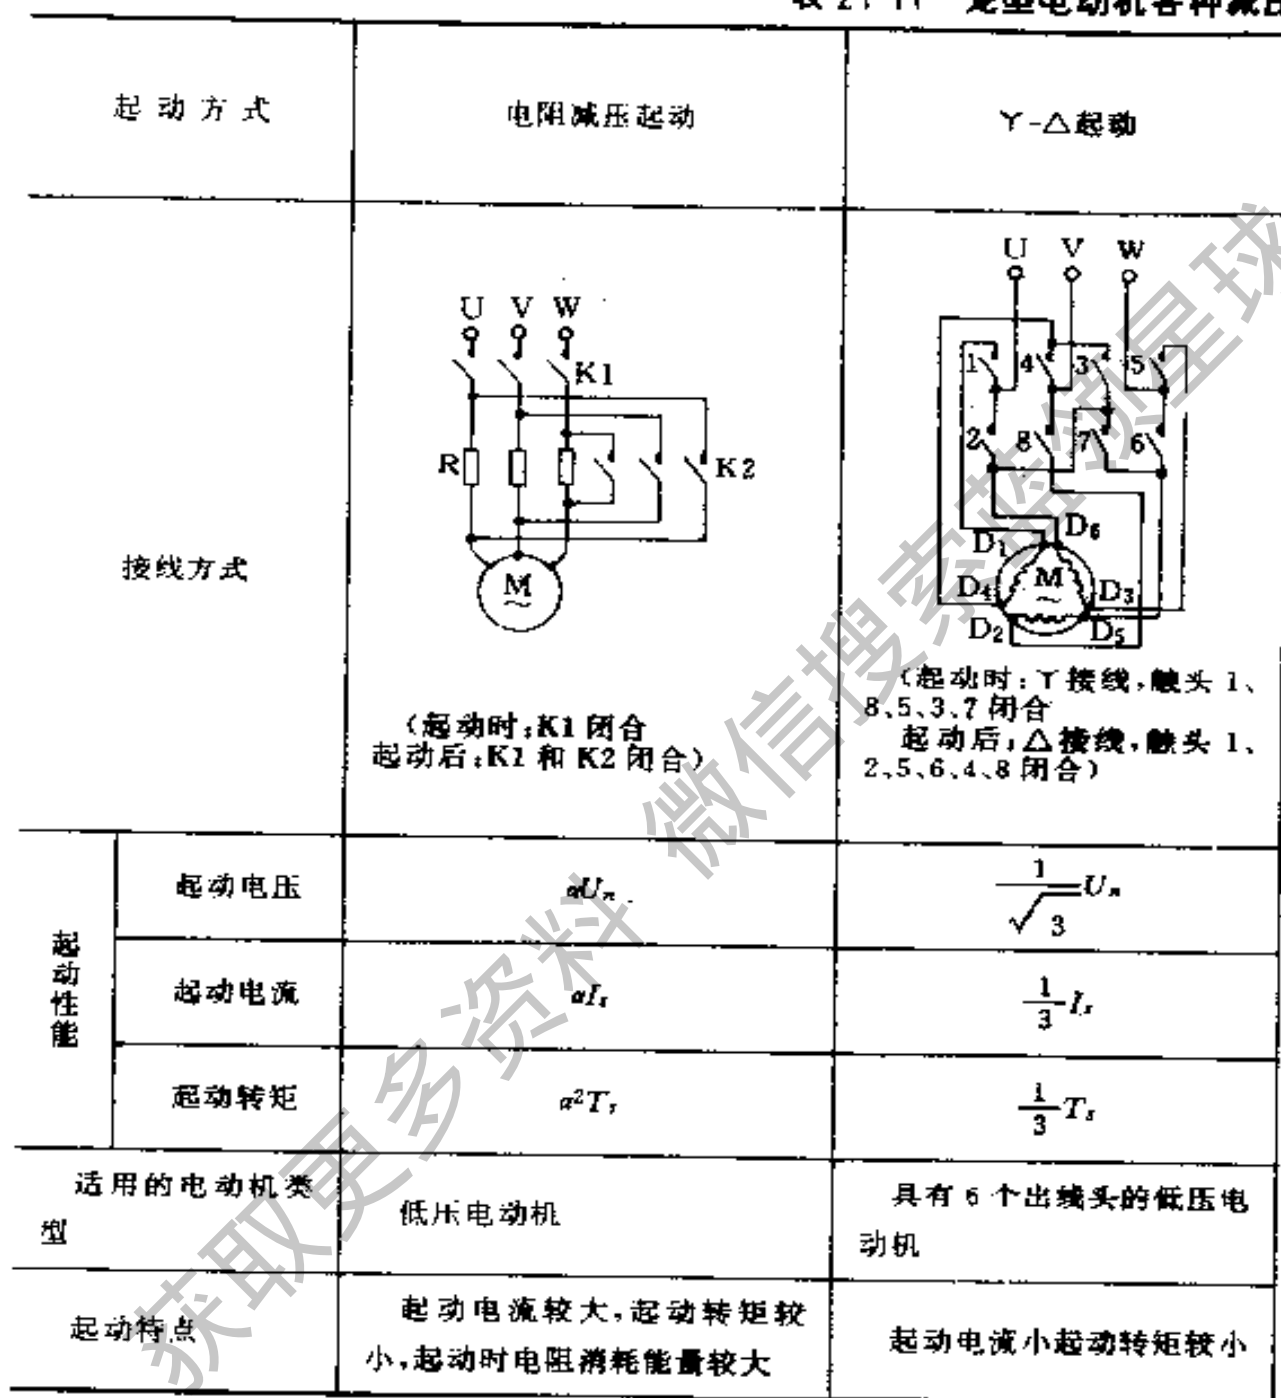 表 21-11 笼型电动机各种减压
起动方式
电阻减压起动
Y-△起动
接线方式
U V W
K1
R
K2
M
~
(起动时:K1 闭合
起动后:K1 和 K2 闭合)
U V W
1 4 3 5
2 8 7 6
D₁ D₆
D₄ M D₃
~
D₂ D₅
(起动时:Y 接线,触头 1、
8、5、3、7 闭合
起动后:△接线,触头 1、
2、5、6、4、8 闭合)
起动性能
起动电压
aUₙ
1/√3 Uₙ
起动电流
aIₛ
1/3 Iₛ
起动转矩
a²Tₛ
1/3 Tₛ
适用的电动机类
型
低压电动机
具有 6 个出线头的低压电
动机
起动特点
起动电流较大,起动转矩较
小,起动时电阻消耗能量较大
起动电流小起动转矩较小
获取更多资料 微信搜索蓝领星球